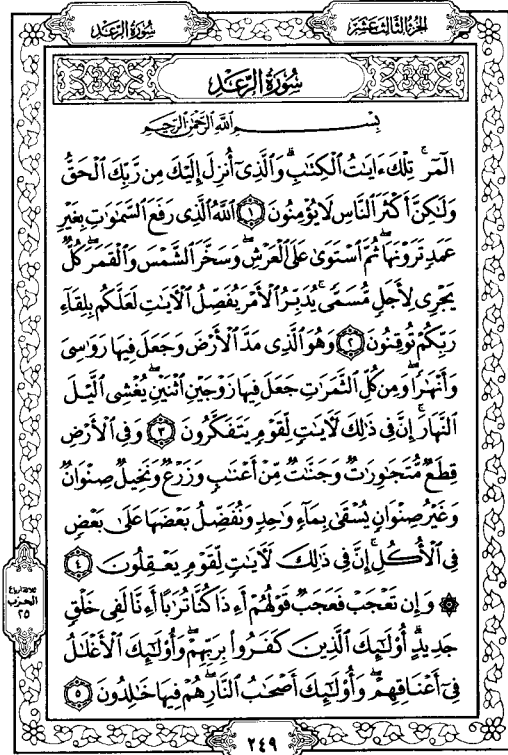 الجزء الثالث عشر
سورة الرعد
سُورَةُ الرَّعْدِ
بِسْمِ اللَّهِ الرَّحْمَٰنِ الرَّحِيمِ
الٓمٓرۚ تِلْكَ ءَايَٰتُ ٱلْكِتَٰبِۗ وَٱلَّذِىٓ أُنزِلَ إِلَيْكَ مِن رَّبِّكَ ٱلْحَقُّ
وَلَٰكِنَّ أَكْثَرَ ٱلنَّاسِ لَا يُؤْمِنُونَ ١ ٱللَّهُ ٱلَّذِى رَفَعَ ٱلسَّمَٰوَٰتِ بِغَيْرِ
عَمَدٍ تَرَوْنَهَاۖ ثُمَّ ٱسْتَوَىٰ عَلَى ٱلْعَرْشِۖ وَسَخَّرَ ٱلشَّمْسَ وَٱلْقَمَرَۖ كُلٌّ
يَجْرِى لِأَجَلٍ مُّسَمًّىۚ يُدَبِّرُ ٱلْأَمْرَ يُفَصِّلُ ٱلْءَايَٰتِ لَعَلَّكُم بِلِقَآءِ
رَبِّكُمْ تُوقِنُونَ ٢ وَهُوَ ٱلَّذِى مَدَّ ٱلْأَرْضَ وَجَعَلَ فِيهَا رَوَٰسِىَ
وَأَنْهَٰرًاۖ وَمِن كُلِّ ٱلثَّمَرَٰتِ جَعَلَ فِيهَا زَوْجَيْنِ ٱثْنَيْنِۖ يُغْشِى ٱلَّيْلَ
ٱلنَّهَارَۚ إِنَّ فِى ذَٰلِكَ لَءَايَٰتٍ لِّقَوْمٍ يَتَفَكَّرُونَ ٣ وَفِى ٱلْأَرْضِ
قِطَعٌ مُّتَجَٰوِرَٰتٌ وَجَنَّٰتٌ مِّنْ أَعْنَٰبٍ وَزَرْعٌ وَنَخِيلٌ صِنْوَانٌ
وَغَيْرُ صِنْوَانٍ يُسْقَىٰ بِمَآءٍ وَٰحِدٍ وَنُفَضِّلُ بَعْضَهَا عَلَىٰ بَعْضٍ
فِى ٱلْأُكُلِۚ إِنَّ فِى ذَٰلِكَ لَءَايَٰتٍ لِّقَوْمٍ يَعْقِلُونَ ٤
۞ وَإِن تَعْجَبْ فَعَجَبٌ قَوْلُهُمْ أَءِذَا كُنَّا تُرَٰبًا أَءِنَّا لَفِى خَلْقٍ
جَدِيدٍۗ أُو۟لَٰٓئِكَ ٱلَّذِينَ كَفَرُوا۟ بِرَبِّهِمْۖ وَأُو۟لَٰٓئِكَ ٱلْأَغْلَٰلُ
فِىٓ أَعْنَاقِهِمْۖ وَأُو۟لَٰٓئِكَ أَصْحَٰبُ ٱلنَّارِۖ هُمْ فِيهَا خَٰلِدُونَ ٥
ثلاثة أرباع
الحزب
٢٥
٢٤٩